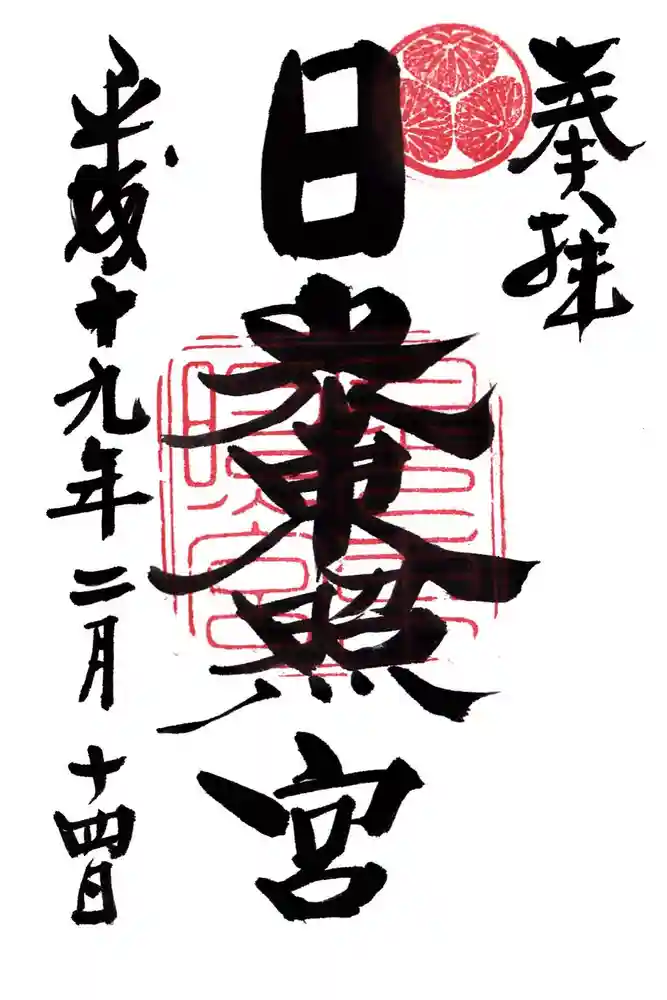 奉拝
日光東照宮
平成十九年二月十四日